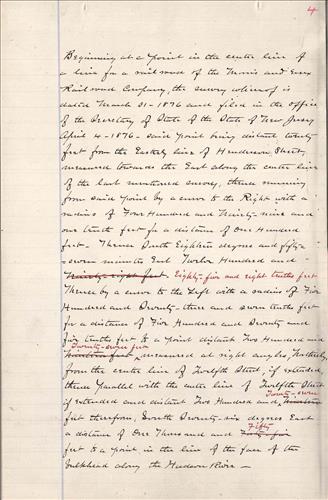 4
Beginning at a point in the center line of
a line for a rail road of the Morris and Essex
Rail road Company, the survey whereof is
dated March 31-1876 and filed in the office
of the Secretary of State of the State of New Jersey
April 4-1876- said point being distant twenty
feet from the Easterly line of Henderson Street,
measured towards the East along the center line
of the last mentioned survey, thence running
from said point by a curve to the Right with a
radius of Four Hundred and Ninety-nine and
one tenth feet for a distance of One Hundred
feet- Thence South Eighteen degrees and fifty-
seven minutes East Twelve Hundred and
Ninety-eight feet Eighty-five and eight tenths feet
Thence by a curve to the Left with a radius of Five
Hundred and Seventy-three and seven tenths feet
for a distance of Five Hundred and Seventy and
five tenths feet to a point distant Two Hundred and
Twenty-seven feet
feet, measured at right angles, Northerly,
from the center line of Twelfth Street, if extended,
thence Parallel with the center line of Twelfth Street
Twenty-seven
if extended and distant Two Hundred and
feet therefrom, South Seventy-six degrees East
Fifty
a distance of One Thousand and Forty-five
feet to a point in the line of the face of the
Bulkhead along the Hudson River-